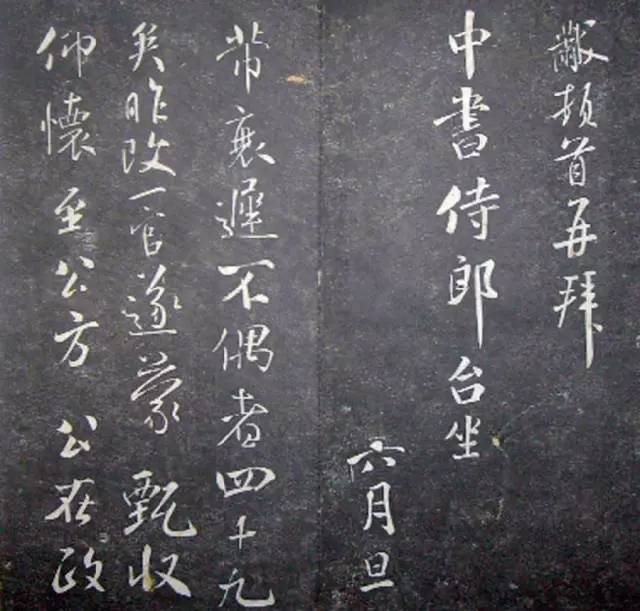 黻頓首再拜
中書侍郎台坐
六月旦
黻衰遲不偶者四十九
矣昨改一官遂蒙 甄收
仰懷至公方 公在政